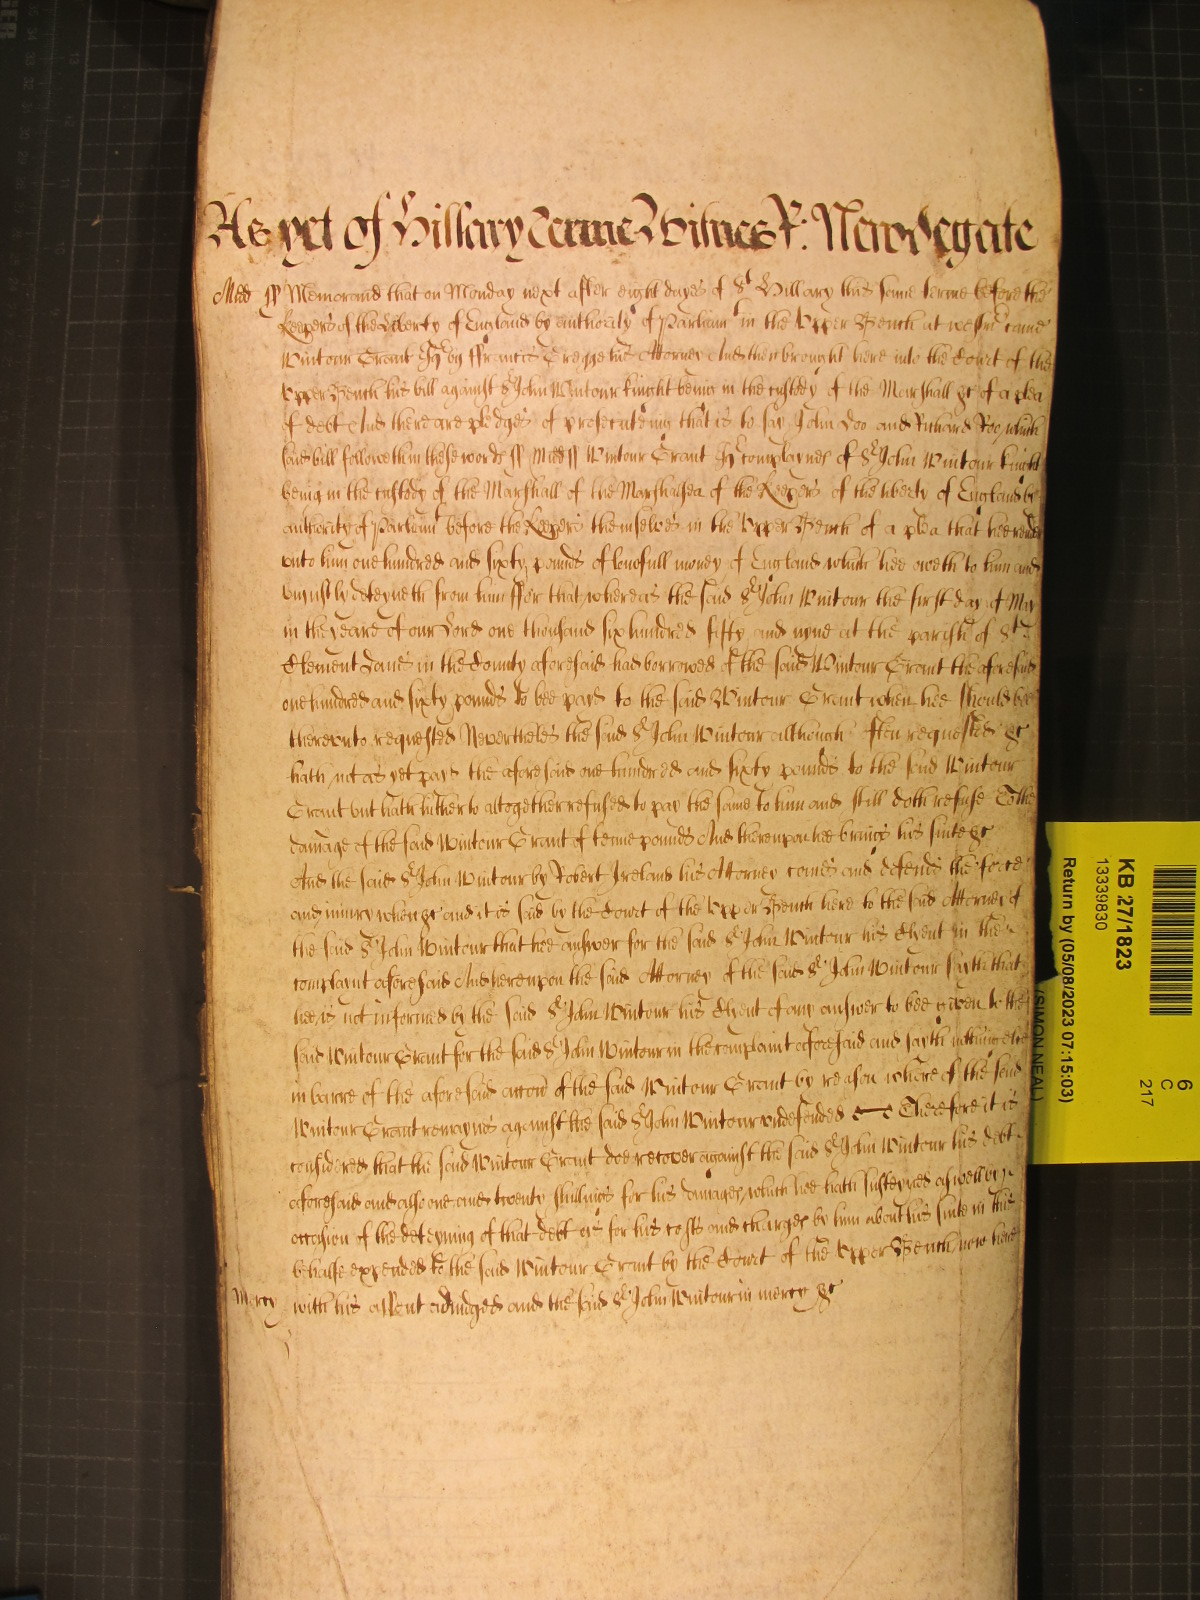 As yet of Hillary Terme Witnes R: Newdegate
Midd ss Memorand that on Monday next after eight dayes of St Hillary this same terme before the
Keepers of the Liberty of England by authority of Parliamt in the Upper Bench at Westmr came
Wintour Grant Gent by ffrancis Gregge his Attorney And then brought here into the Court of the
Upper Bench his bill against Sr John Wintour knight being in the custody of the Marshall &c of a plea
of debt And there are pledges of prosecuteing that is to say John Doo and Richard Roo which
said bill followeth in these words ss Midd ss Wintour Grant Gent complaynes of Sr John Wintour knight
being in the custody of the Marshall of the Marshalsea of the Keepers of the liberty of England by
authority of Parliamt before the Keepers themselves in the Upper Bench of a plea that hee render
unto him one hundred and sixty pounds of lawfull money of England which hee oweth to him and
uniustly deteyneth from him ffor that whereas the said Sr John Wintour the first day of May
in the yeare of our Lord one thousand six hundred fifty and nyne at the parish of St
Clement Danes in the County aforesaid had borrowed of the said Wintour Grant the aforesaid
one hundred and sixty pounds to bee payd to the said Wintour Grant when hee should bee
thereunto requested Neverthelesse the said Sr John Wintour although often requested &c
hath not as yet payd the aforesaid one hundred and sixty pounds to the said Wintour
Grant but hath hitherto altogether refused to pay the same to him and still doth refuse To the
damage of the said Wintour Grant of tenne pounds And thereupon hee brings his suite &c
And the said Sr John Wintour by Robert Ireland his Attorney comes and defends the force
and iniury when &c and it is said by the Court of the Upper Bench here to the said Attorney of
the said Sr John Wintour that hee answer for the said Sr John Wintour his Clyent in the
complaynt aforesaid And hereupon the said Attorney of the said Sr John Wintour sayth that
hee is not informed by the said Sr John Wintour his Clyent of any answer to bee given to the
said Wintour Grant for the said Sr John Wintour in the complaint aforesaid and sayth nothing else
in barre of the aforesaid accon of the said Wintour Grant by reason whereof the said
Wintour Grant remaynes against the said Sr John Wintour undefended Therefore it is
considered that the said Wintour Grant doe recover against the said Sr John Wintour his debt
aforesaid and also one and twenty shillings for his damages which hee hath susteyned as well by
occasion of the deteyning of that debt as for his costs and charges by him about his suite in this
behalfe expended to the said Wintour Grant by the Court of the Upper Bench now here
Mercy with his assent adiudged and the said Sr John Wintour in mercy &c
KB 27/1823
13339830
Return by (05/08/2023 07:15:03)
(SIMON NEAL)
6
C
217